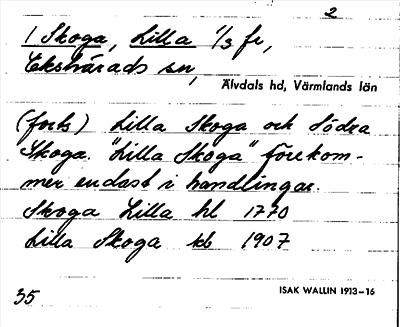 2
1 Skoga, Lilla 1/3 fr,
Ekshärads sn,
Älvdals hd, Värmlands län
(forts) Lilla Skoga och Södra
Skoga. "Lilla Skoga" förekom-
mer endast i handlingar.
Skoga Lilla hl 1770
Lilla Skoga kb 1907
35
ISAK WALLIN 1913-16